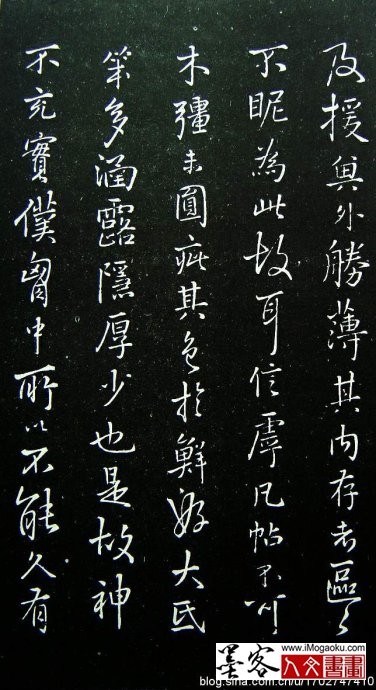 及援與外勝薄其内存者區々
不眤為此故耳信虖凡帖不可
木彊未圓疵其色於鮮好大氐
筆多涵露隱厚少也是故神
不充實僕胷中所以不能久有
墨客
www.iMogaoku.com
人文書畫
blog.sina.com.cn/u/1702747410